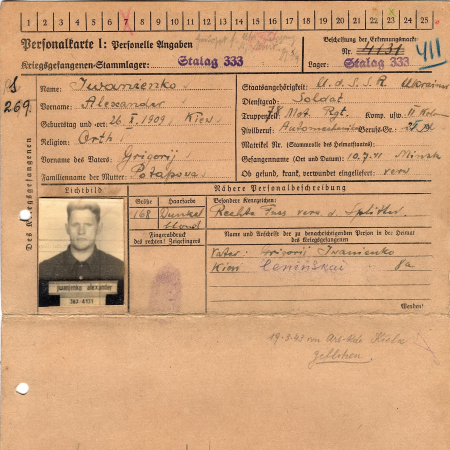 1 2 3 4 5 6 7 8 9 10 11 12 13 14 15 16 17 18 19 20 21 22 23 24 25
Personalkarte I: Personelle Angaben
Kriegsgefangenen-Stammlager: Stalag 333
Beschriftung der Erkennungsmarke
Nr. 4131 411
Lager: Stalag 333
269.
Des Kriegsgefangenen
Name: Iwanienko
Vorname: Alexander
Geburtstag und -ort: 26. 1909 Kiew
Religion: Orth
Vorname des Vaters: Grigorij
Familienname der Mutter: Potapova
Staatsangehörigkeit: U.d.S.S.R. Ukraine
Dienstgrad: Soldat
Truppenteil: Mot. Rgt. Komp. usw.
Zivilberuf: Berufs-Gr.
Matrikel Nr. (Stammrolle des Heimatstaates):
Gefangennahme (Ort und Datum): 10.7.41 Minsk
Ob gesund, krank, verwundet eingeliefert: verw
Lichtbild
Nähere Personalbeschreibung
Größe Haarfarbe
168 Dunkelblond
Besondere Kennzeichen:
Rechte Fuss verw. d. Splitter
Fingerabdruck
des rechten! Zeigefingers
Name und Anschrift der zu benachrichtigenden Person in der Heimat
des Kriegsgefangenen
Vater: Grigorij Iwanienko
Kiew 8a
iwanjenko alexander
333-4131
Wenden!
19.3.43